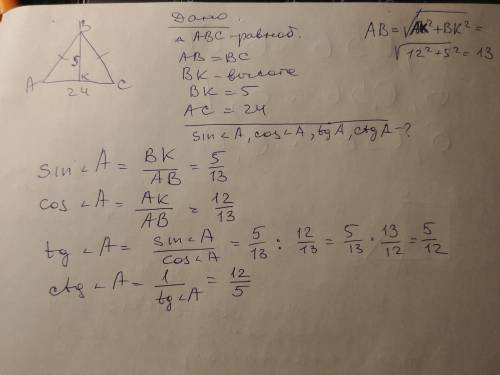 B
5
A K C
24
Дано:
Δ ABC - равноб.
AB = BC
BK - высота
BK = 5
AC = 24
sin∠A, cos∠A, tg A, ctg A - ?
AB = √AK² + BK² =
√12² + 5² = 13
sin∠A = BK/AB = 5/13
cos∠A = AK/AB = 12/13
tg∠A = sin∠A/cos∠A = 5/13 : 12/13 = 5/13 · 13/12 = 5/12
ctg∠A = 1/tg∠A = 12/5